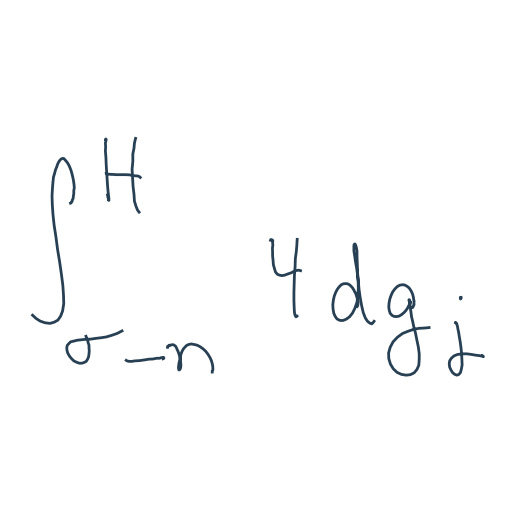 \int_{\sigma-n}^{H} 4 dg_{j}